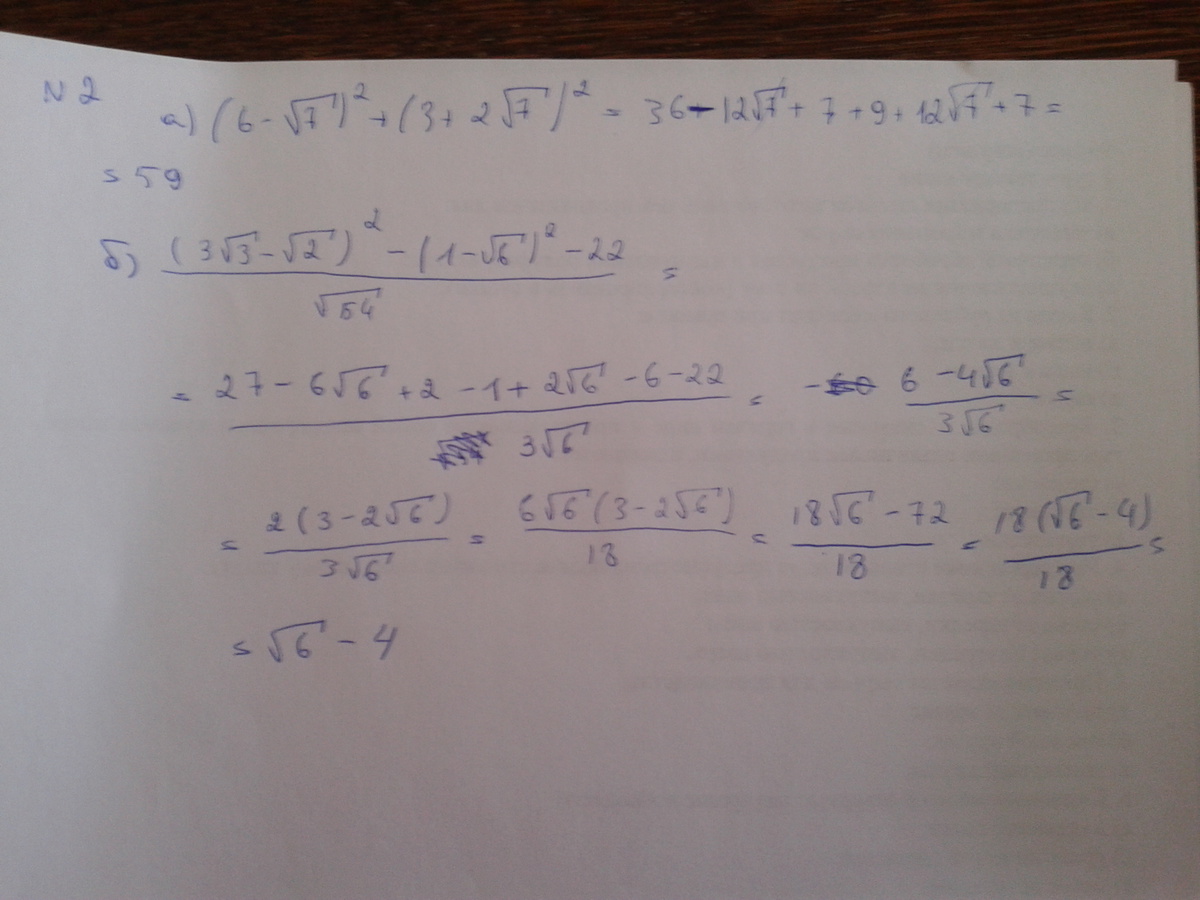 N 2
а) (6 - √7)² + (3 + 2√7)² = 36 - 12√7 + 7 + 9 + 12√7 + 7 =
= 59
б) ((3√3 - √2)² - (1 - √6)² - 22) / √54 =
= (27 - 6√6 + 2 - 1 + 2√6 - 6 - 22) / 3√6 = - (6 - 4√6) / 3√6 =
= 2(3 - 2√6) / 3√6 = 6√6(3 - 2√6) / 18 = (18√6 - 72) / 18 = 18(√6 - 4) / 18 =
= √6 - 4